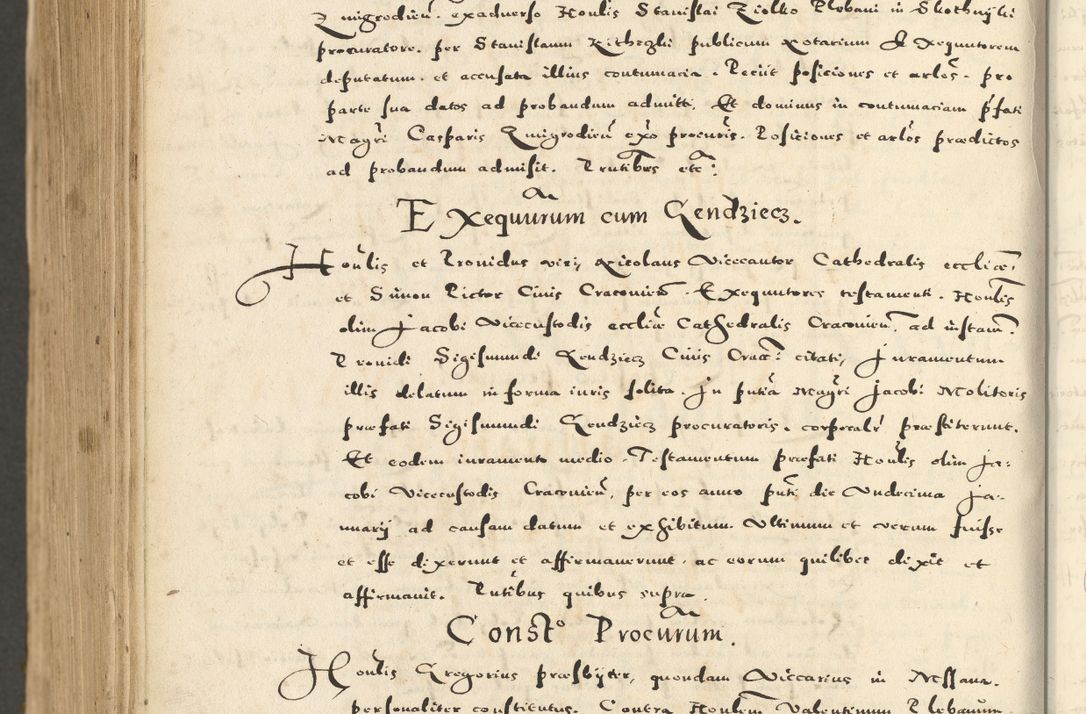 Zmigrodien̄. exadverso Honlis Stanislai Ziolko Plebani in Skothnyki
procuratore. per Stanislaum Kitheghi publicum Notarium & Exequutorem
deputatum. et accusata illius contumacia. Petiit posiciones et arlos̄. pro
parte sua datos ad probandum admitti. Et dominus in contumaciam p̄fati
Magr̄i Casparis Zmigrodien̄ exo procur̄is. Posiciones et arlos prædictos
ad probandum admisit. Pñtibus etc̄.
Exequuturum cum Gendziecz.
Honlis et Providus viri, Nicolaus Vicecantor Cathedralis eccliæ,
et Simon Pictor Civis Cracovien̄. Exequutores testamenti. Honlis
olim Jacobi Vicecustodis eccliæ Cathedralis Cracovien̄. ad instan̄.
Providi Sigismundi Gendziecz Civis Crac̄. citati, Juramentum
illis delatum in forma iuris solita. In pn̄tia Magr̄i Jacobi Molitoris
præfati Sigismundi Gendziecz procuratoris. corporalr̄ præstiterunt.
Et eodem iuramento medio. Testamentum præfati Honlis olim Ja:
cobi Vicecustodis Cracovien̄, per eos anno pn̄ti die Undecima Ja-
nuarij ad causam datum et exhibitum. Ultimum et verum fuisse
et esse dixerunt et affirmaverunt, ac eorum quilibet dixit et
affirmavit. Pn̄tibus quibus supra.
Const.º Procurum.
Honlis Gregorius præsbyter, quondam Viccarius in Mssana.
personaliter constitutus. Contra Honlem Valentinum Plebanum.